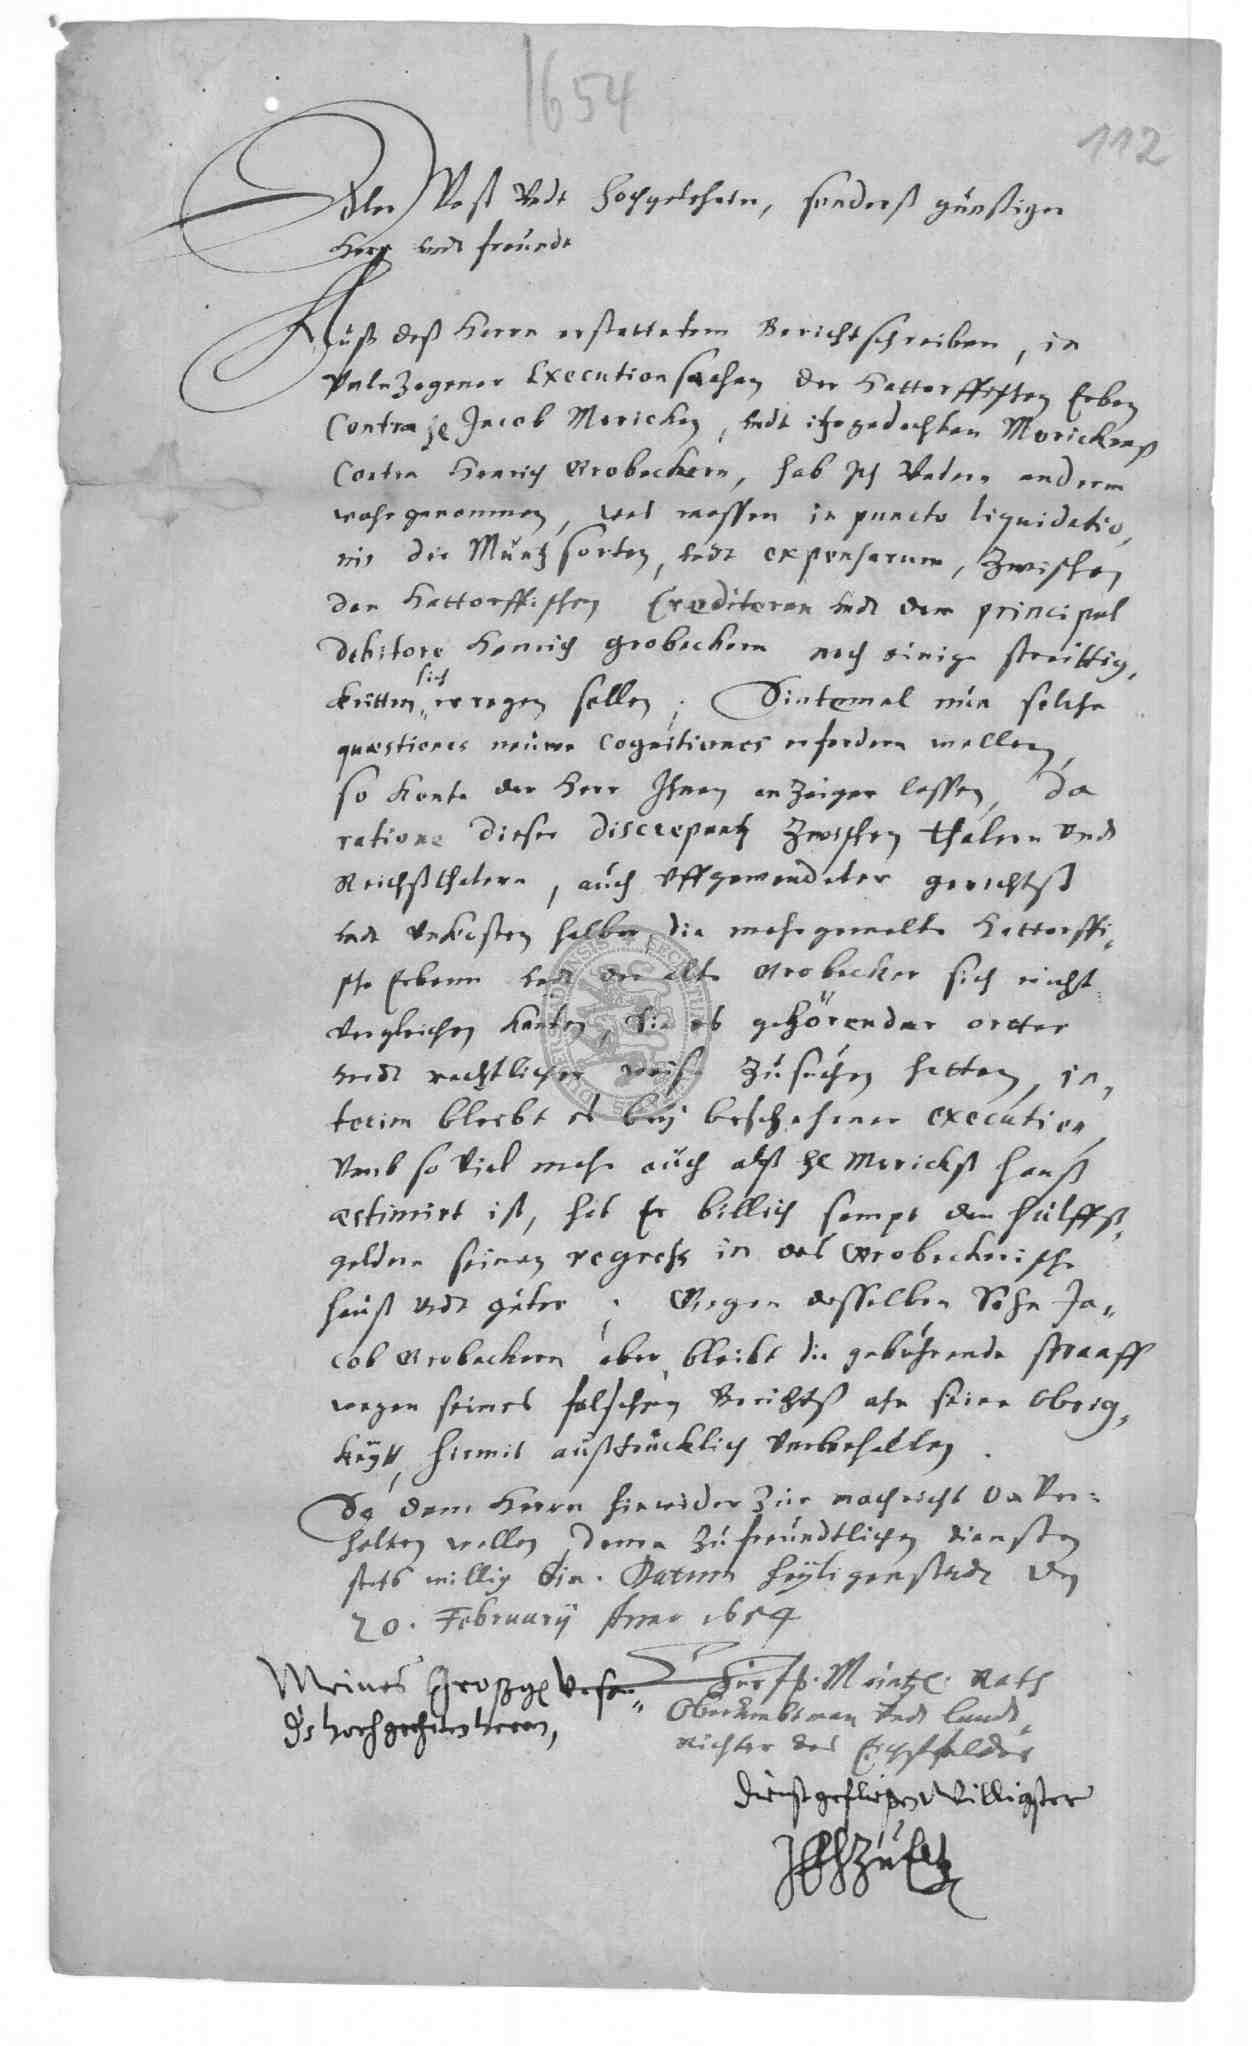 1654
112
Edler Vest Undt Hochgelehrter, sonderß günstiger
Herr undt freündt
Auß deß Herrn erstattetem Berichtschreiben, in
Vnlnzogener Execution sachen der Hattorffischen Erben
Contra Jacob Moricken, undt itzogedachten Morickenß
Contra Henrich Grobeckern, hab Ich Undern anderm
wahrgenommen, was massen in puncto liquidatio,
nis die Müntz sorten, undt expensarum, Zwischen
den Hattorffischen Creditoren undt dem principal
debitore Henrich Grobeckern noch einige streittig,
keitten sich erregen sollen; Sintemal nun solche
quæstiones neüwe Cognitiones erfordern wollen,
so konte der Herr Ihnen anzeigen lassen, Da
ratione dieser discrepantz Zwischen thalern Undt
Reichßthalern, auch Uffgewendeter gerichtß
undt Unkosten halber, die mehrgemelte Hattorffi,
sche Erbenn undt der alte Grobecker sich nicht
Vergleichen konten, Sie es gehörender ortter
undt rechtlicher weise Zusuchen hetten, in,
terim bleibt es bey beschehener execution,
Umb so Viel mehr auch alß Morickß hauß
æstimirt ist, hat Er billich sampt den hülffß,
geldern seinen regress in das Grobeckerische
hauß undt güter; Wegen desselben Sohn Ja,,
cob Grobeckern aber, bleibt die gebührende straaff
wegen seines falschen Berichtß ahn seine Obrig,
keytt, hiermit außtrücklich Vorbehalten.
So dem Herrn hinwieder Zur nachricht Un Ver:
halten wollen, deme Zu freündtlichen diensten
stets willig bin. Datum Heyligenstadt den
20. February Anno 1654
Meines Großg Vesten
hochgeehrten herren,
Churfh. Meintz. Rath
Oberambtman Undt landt,
richter des Eychsfeldes
Dienstgeflißen Williger